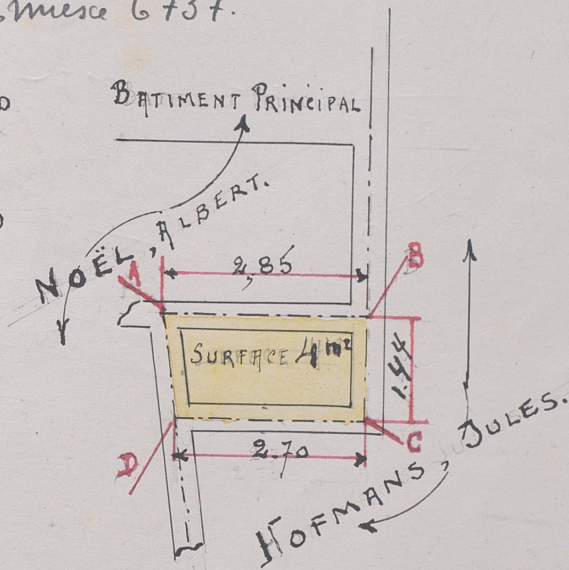 6737.
BATIMENT PRINCIPAL
NOËL, ALBERT.
A
2,85
B
SURFACE 4 m²
1.44
D
2.70
C
HOFMANS, JULES.